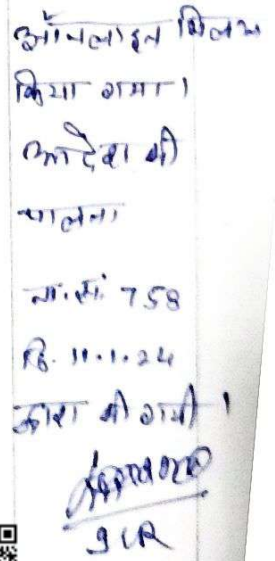 ऑनलाइन मिलान
किया गया।
आदेश की
पालना
ना.सं. 758
दि. 11.1.24
द्वारा की गयी।